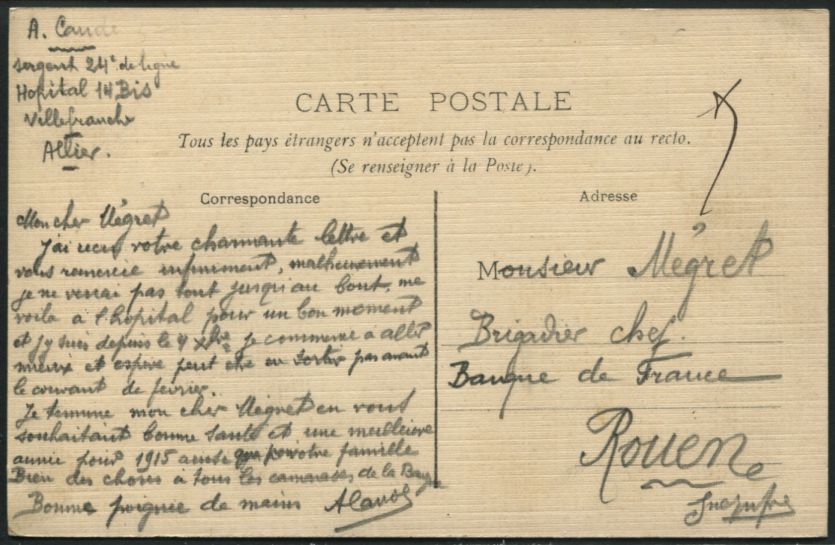 A. Caude
sergent 24e de ligne
Hopital 14 Bis
Villefranche
Allier.
CARTE POSTALE
Tous les pays étrangers n'acceptent pas la correspondance au recto.
(Se renseigner à la Poste).
Correspondance
Mon cher Mégret
j'ai recu votre charmante lettre et
vous remercie infiniment, malheureusement
je ne verrai pas tout jusqu'au bout, me
voila à l'hopital pour un bon moment
et j'y suis depuis le 4 Xbre je commence a aller
mieux et espère peut etre en sortir pas avant
le courant de fevrier.
Je termine mon cher Mégret en vous
souhaitant bonne santé et une meilleure
année pour 1915 ainsi que votre famille
Bien des choses à tous les camarades de la Banq
Bonne poignée de mains
Adresse
Monsieur Mégret
Brigadier chef.
Banque de France
Rouen